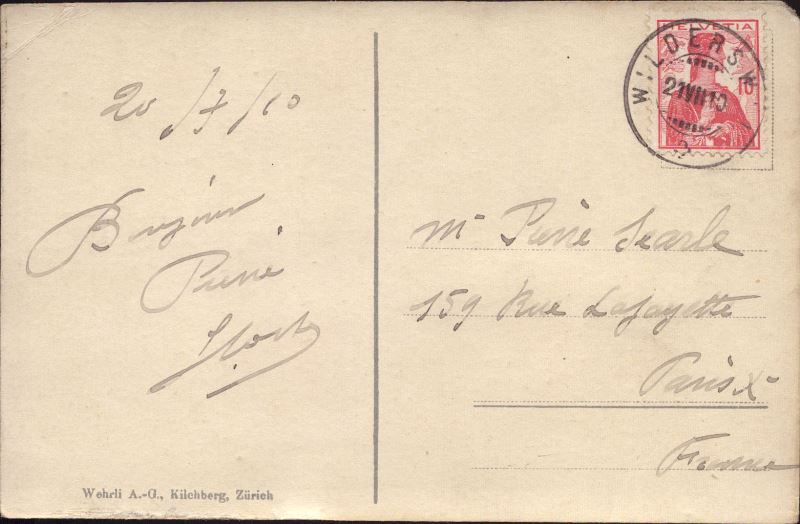 20/7/10
Bonjour
Pierre
HELVETIA
10
WILDERSW
21VII10
Mr Pierre Searle
159 Rue Lafayette
Paris X
France
Wehrli A.-G., Kilchberg, Zürich